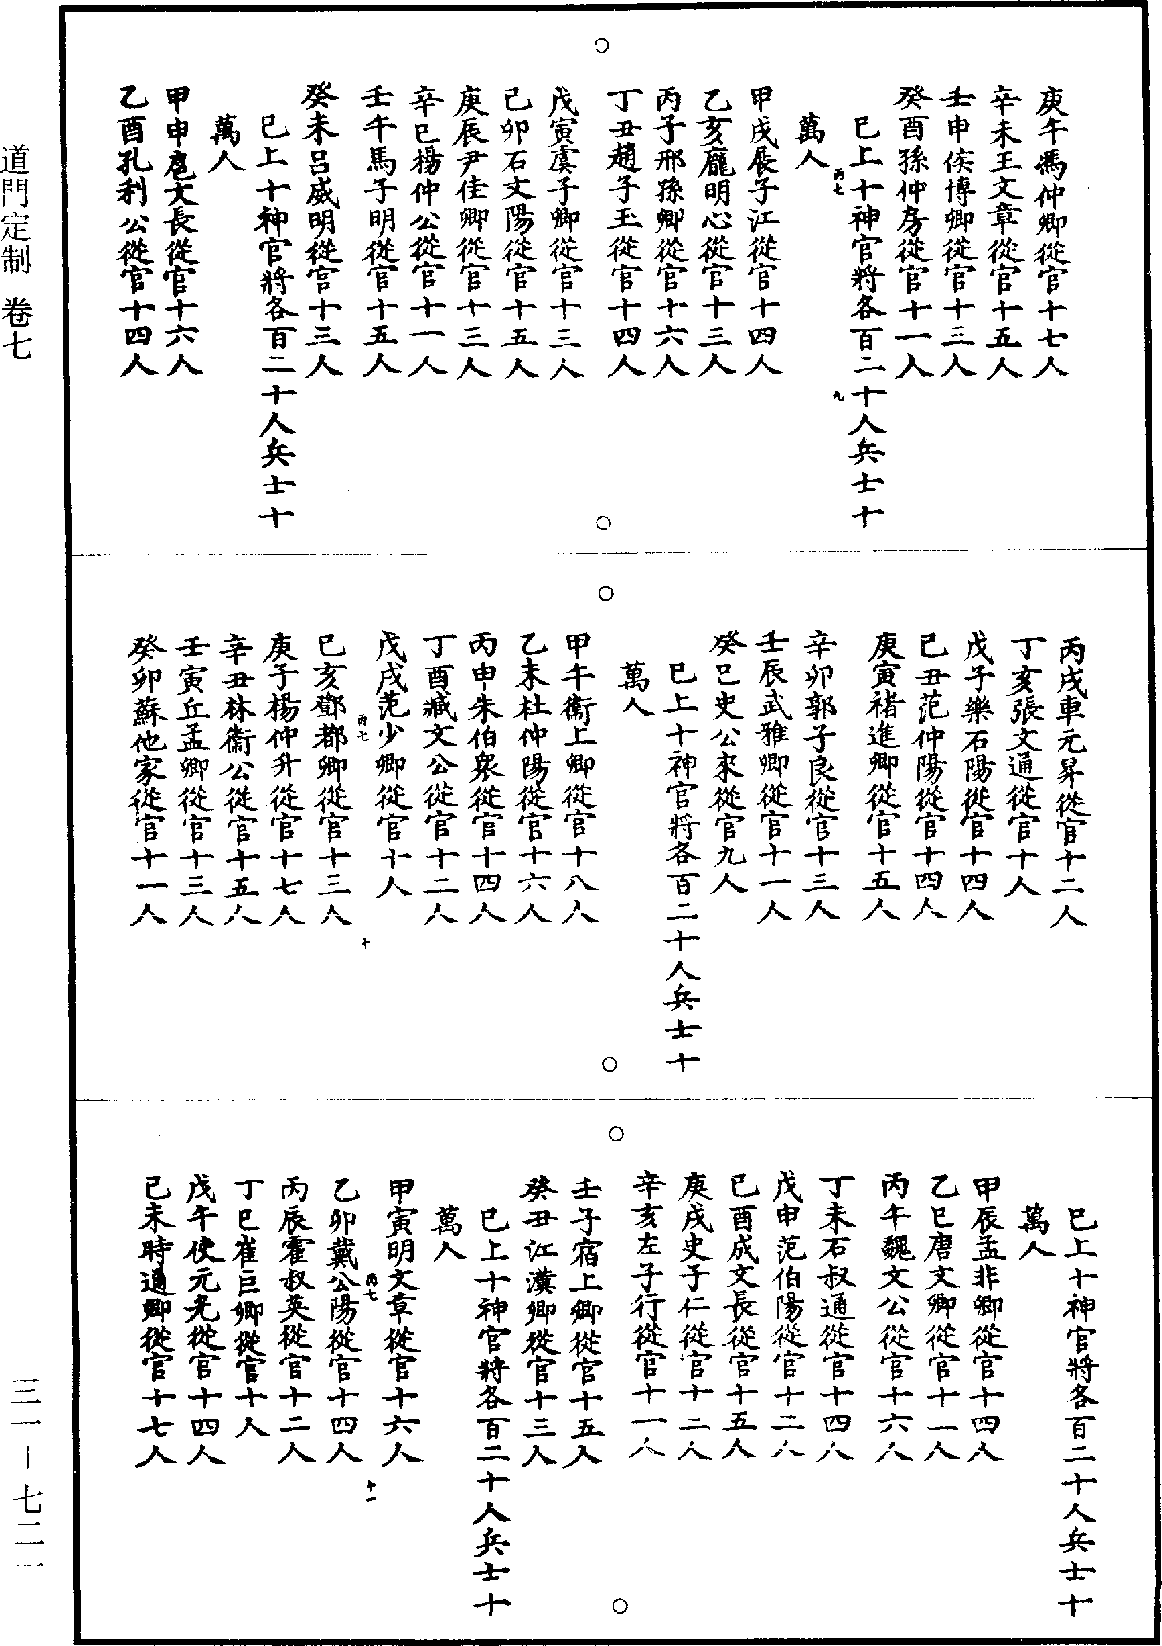 庚午馮仲卿從官十七人
辛未王文章從官十五人
壬申侯博卿從官十三人
癸酉孫仲房從官十一人
已上十神官將各百二十人兵士十
萬人
丙七
九
甲戌展子江從官十四人
乙亥龐明心從官十三人
丙子邢孫卿從官十六人
丁丑趙子玉從官十四人
戊寅虞子卿從官十三人
己卯石文陽從官十五人
庚辰尹佳卿從官十三人
辛巳楊仲公從官十一人
壬午馬子明從官十五人
癸未呂威明從官十三人
已上十神官將各百二十人兵士十
萬人
甲申扈文長從官十六人
乙酉孔利公從官十四人
丙戌車元昇從官十二人
丁亥張文通從官十人
戊子樂石陽從官十四人
己丑范仲陽從官十四人
庚寅褚進卿從官十五人
辛卯郭子良從官十三人
壬辰武雅卿從官十一人
癸巳史公來從官九人
已上十神官將各百二十人兵士十
萬人
甲午衞上卿從官十八人
乙未杜仲陽從官十六人
丙申朱伯衆從官十四人
丁酉臧文公從官十二人
戊戌范少卿從官十人
丙七
十
己亥鄧都卿從官十三人
庚子楊仲升從官十七人
辛丑林衞公從官十五人
壬寅丘孟卿從官十三人
癸卯蘇他家從官十一人
已上十神官將各百二十人兵士十
萬人
甲辰孟非卿從官十四人
乙巳唐文卿從官十一人
丙午魏文公從官十六人
丁未石叔通從官十四人
戊申范伯陽從官十二人
己酉成文長從官十五人
庚戌史子仁從官十二人
辛亥左子行從官十一人
壬子宿上卿從官十五人
癸丑江漢卿從官十三人
已上十神官將各百二十人兵士十
萬人
甲寅明文章從官十六人
丙七
十一
乙卯戴公陽從官十四人
丙辰霍叔英從官十二人
丁巳崔巨卿從官十人
戊午使元光從官十四人
己未時通卿從官十七人
道門定制 卷七
三一—七二一